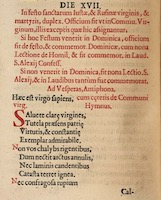 DIE XVII.
In festo sanctarum Iustæ, & Rufinæ virginis, &
martyris, duplex. Officium fit vt in Communi Vir-
ginum, illis exceptis quæ hic assignantur.
Si hoc Festum venerit in Dominica, officium
fit de festo, & commemor. Dominicæ, cum nona
Lectione de Homil. & fit commemor. in Laud.
S. Alexij Confess.
Si non venerit in Dominica, fit nona Lectio S.
Alexij, & in Laudibus tantùm fiat commemorat.
Ad Vesperas, Antiphona.
Hæc est virgo sapiens, cum cæteris de Communi
virg. Hymnus.
Saluete claræ virgines,
Tutela præsens patriæ
Virtutis, & constantiæ
Exemplar admirabile.
Non vos chalybs nigrantibus,
Dum nectit arctus annulis,
Nec laminis candentibus
Catasta terret ignea.
Nec confragosa rupium
Cal-